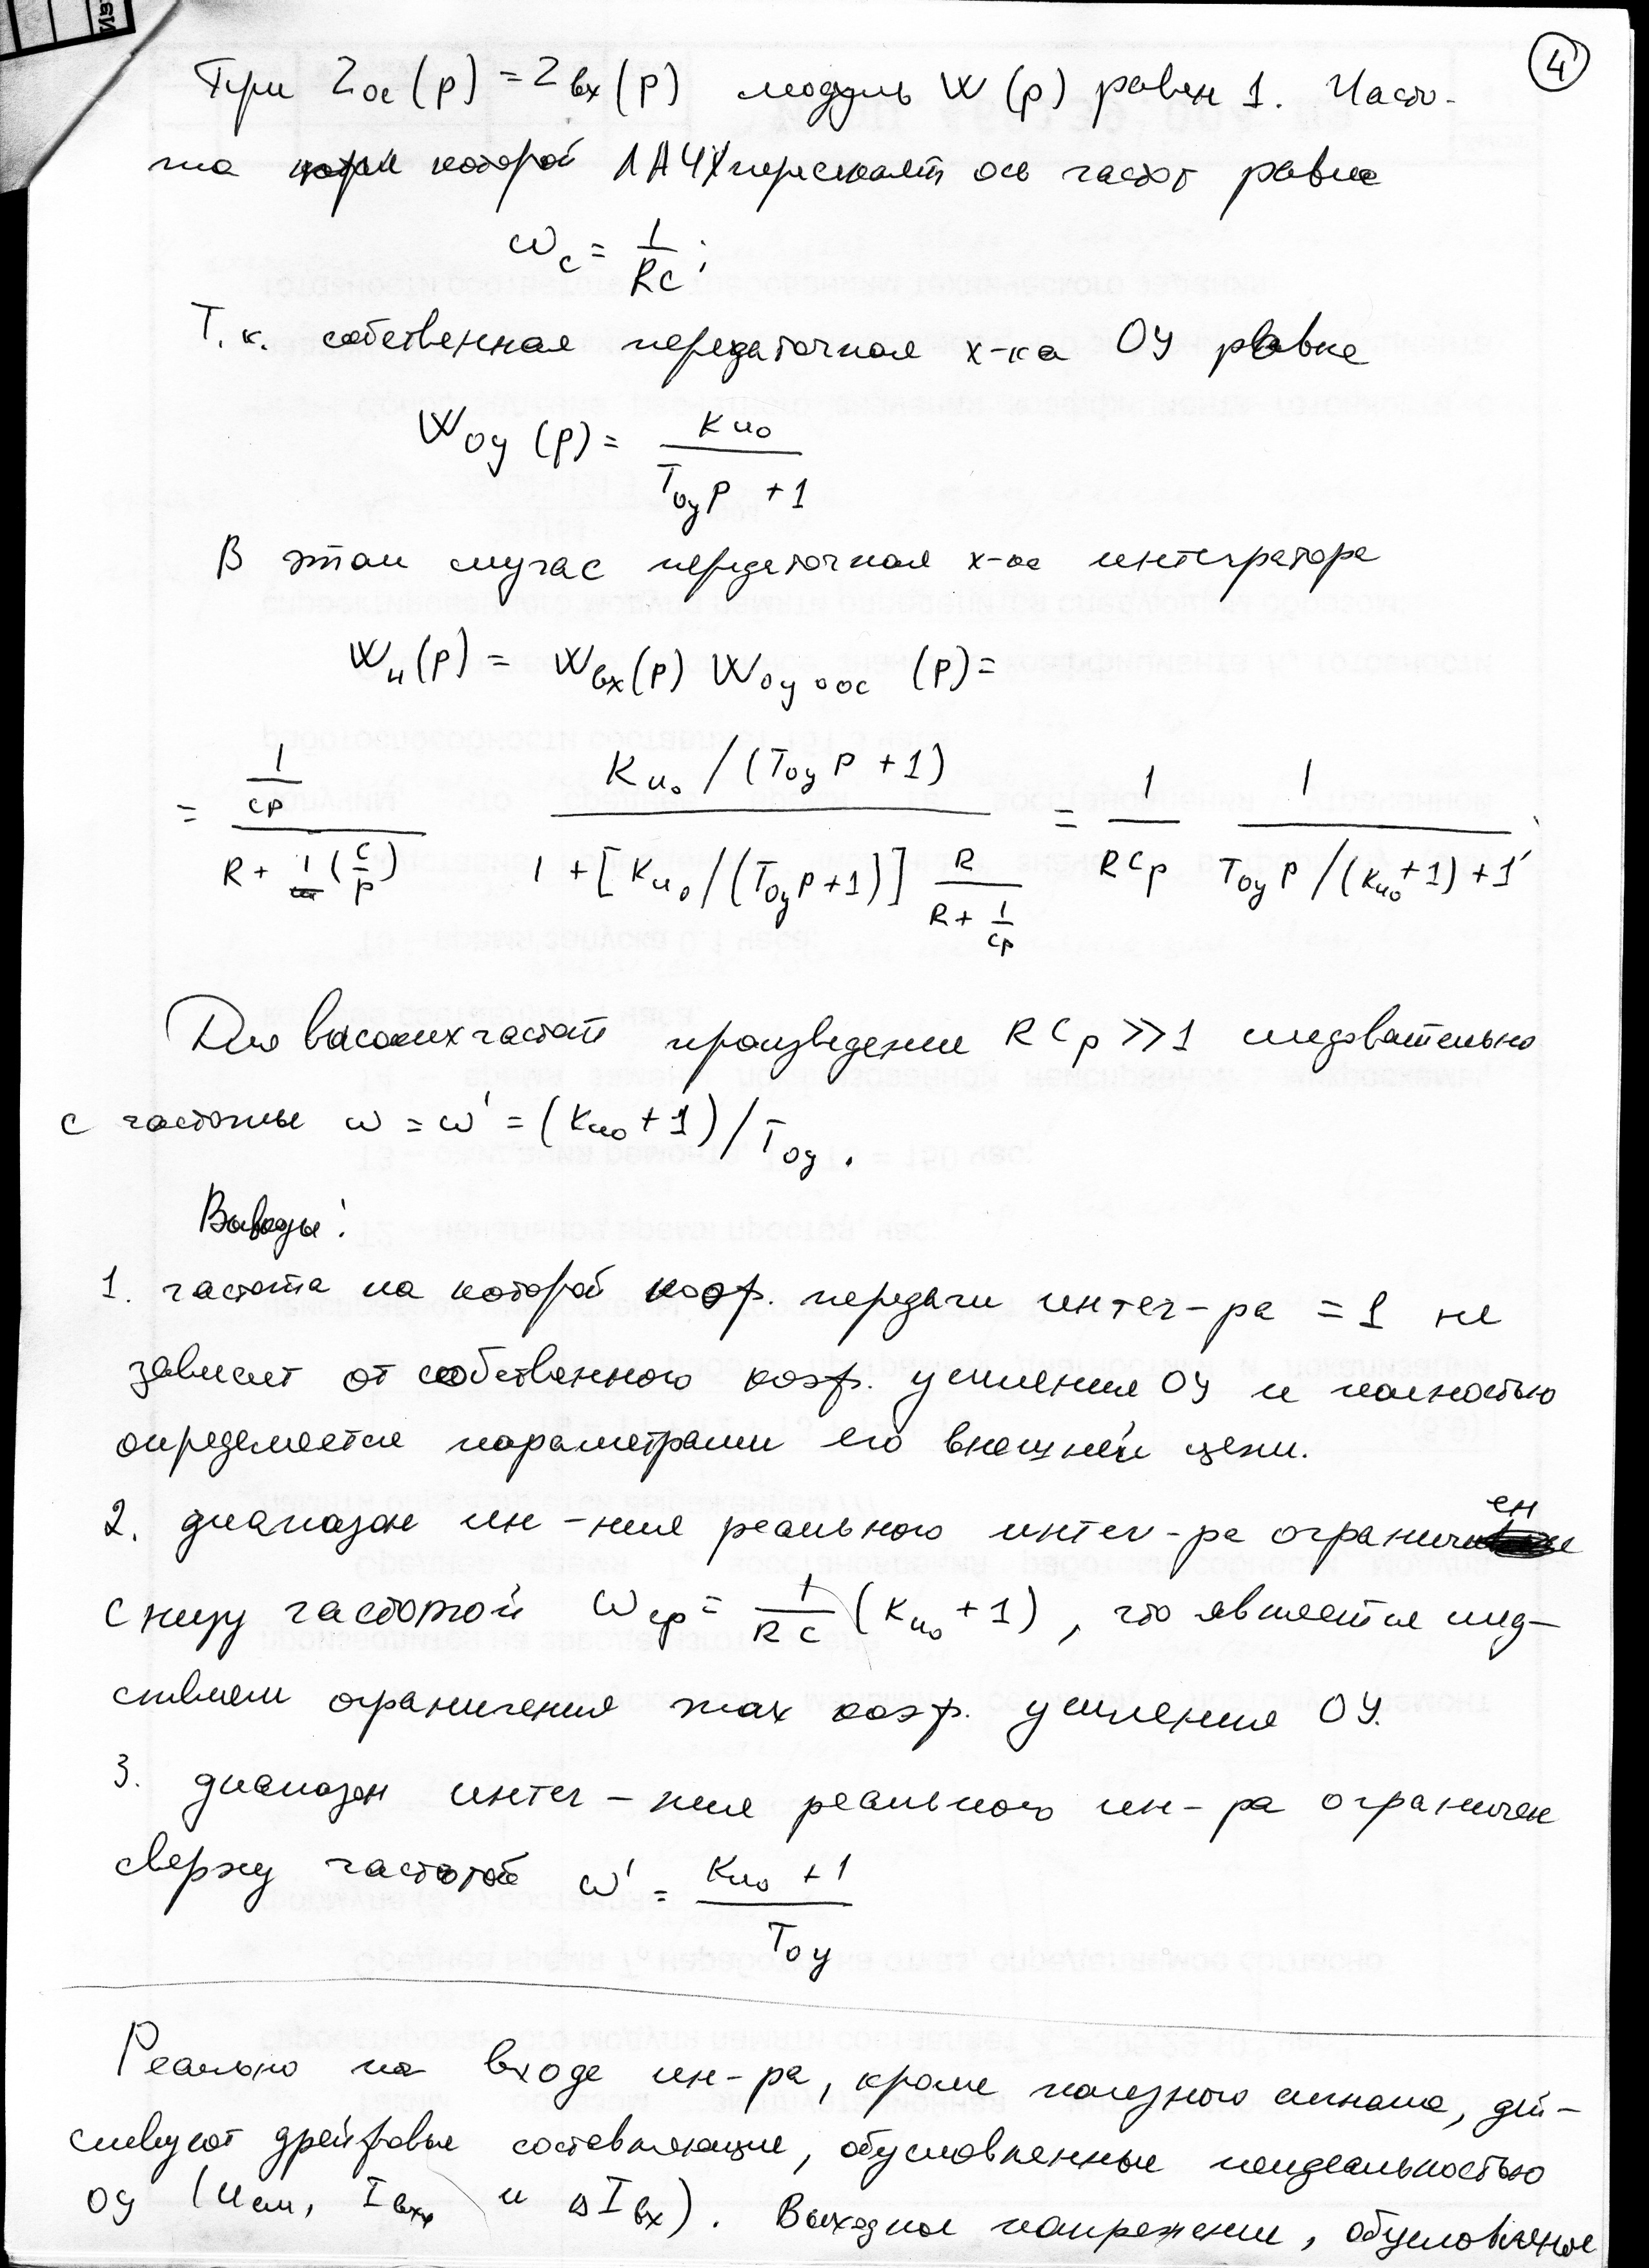 4
При Zос(р) = Zвх(р) модуль W(р) равен 1. Часто-
та при которой ЛАЧХ пересекает ось частот равна
ω_c = 1/RC;
Т.к. собственная передаточная х-ка ОУ равна
Wоу(р) = Kи₀ / (Tоу p + 1)
В этом случае передаточная х-ка интегратора
Wи(р) = Wвх(р) Wоу оос (р) =
= (1/Cp) / (R + 1(C/p)) · (Kи₀/(Tоу p + 1)) / (1 + [Kи₀/(Tоу p+1)] R/(R + 1/Cp)) = 1/RCp · 1/(Tоу p/(Kи₀+1)+1)
Для высоких частот произведение RCp >> 1 следовательно
с частоты ω = ω' = (Kи₀+1)/Tоу.
Выводы:
1. частота на которой коэф. передачи интег-ра = 1 не
зависит от собственного коэф. усиления ОУ и полностью
определяется параметрами его внешней цепи.
2. диапазон ин-ния реального интег-ра ограничен
снизу частотой ωср = 1/RC (Kи₀+1), что является след-
ствием ограничения max коэф. усиления ОУ.
3. диапазон интег-ния реального ин-ра ограничен
сверху частотой ω' = (Kи₀+1)/Tоу
Реально на входе ин-ра, кроме полезного сигнала, дей-
ствуют дрейфовые составляющие, обусловленные неидеальностью
ОУ (Uсм, Iвх, и ΔIвх). Выходное напряжение, обусловленное